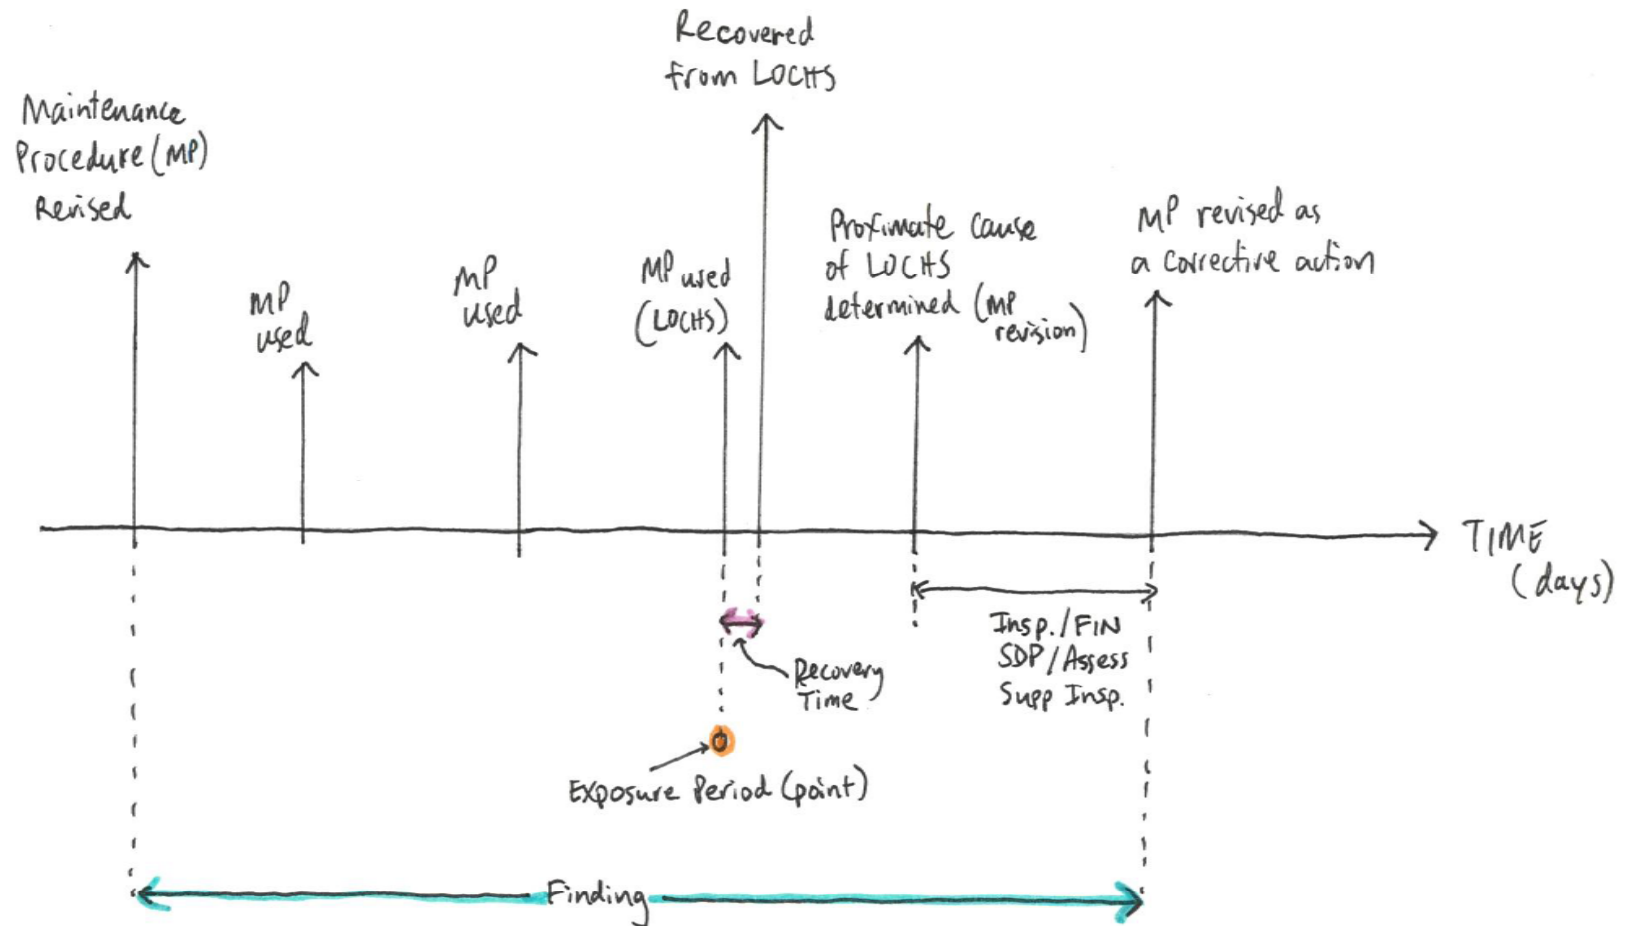 Recovered
from LOCHS
Maintenance
Procedure (MP)
Revised
MP
used
MP
used
MP used
(LOCHS)
Proximate cause
of LOCHS
determined (MP
revision)
MP revised as
a corrective action
TIME
(days)
Insp./FIN
SDP/Assess
Supp Insp.
Recovery
Time
Exposure Period (point)
Finding